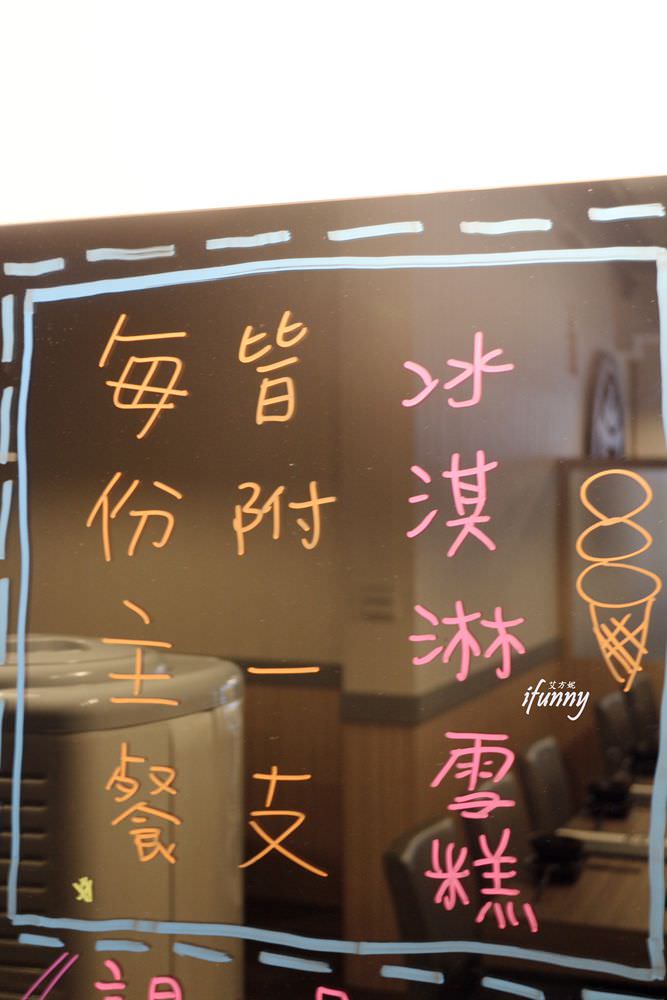 每份主餐
皆附一支
冰淇淋雪糕
艾方妮
ifunny